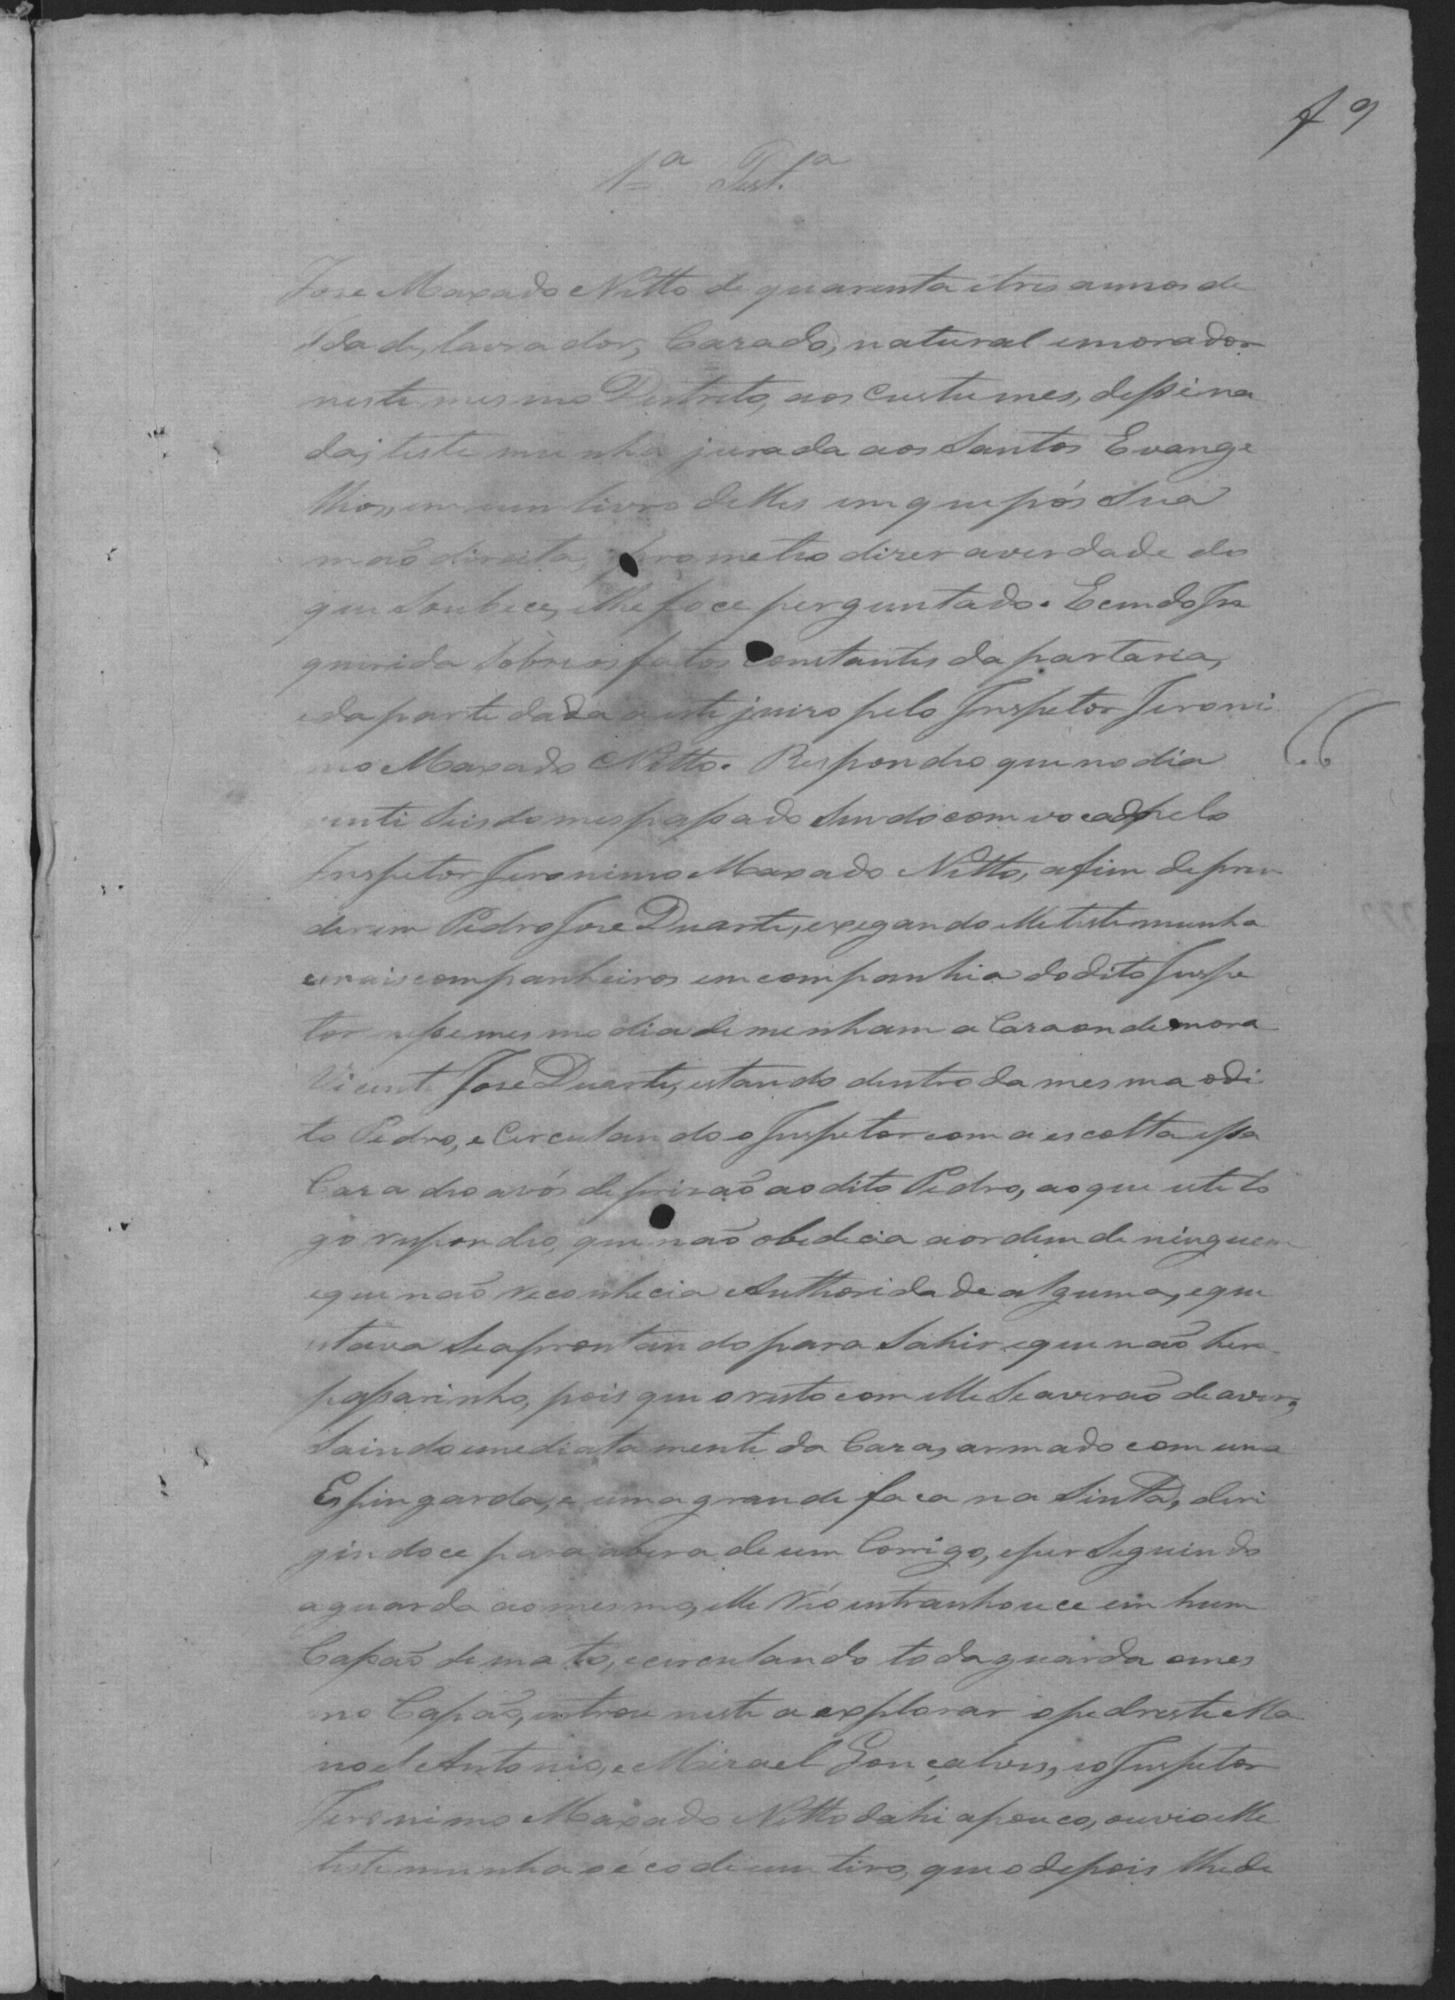 f 9
1ª Test.ª
Jose Maxado Netto de quarenta itres annos de
idade, lavrador, Cazado, natural emorador
neste mesmo Destrito, aos Custumes, disse na
da; testemunha jurada aos Santos Evange
lhos, em um livro delles em que pós Sua
mão direita, prometeo dizer averdade do
que Soubece, elhe foce perguntado. E cendo In
querida Sobre os fatos constantes da portaria,
eda parte dada a este juizo pelo Inspetor Jeroni
mo Maxado Netto. Respondeo que no dia
vinti Seis do mes passado Sendo comvocado pelo
Inspetor Jeronimo Maxado Netto, afim de pren
derem Pedro Jose Duarte, exegando elle testemunha
emais companheiros em companhia do dito Inspe
tor nesse mesmo dia de menham a Caza onde mora
Vicente Jose Duarte, estando dentro da mesma o di
to Pedro, e Cerculando o Inspetor com a escolta essa
Caza deo a vós de prizão ao dito Pedro, ao que este lo
go respondeo, que não obedecia a ordem de ninguem
eque não reconhecia Authoridade alguma, eque
estava Se aprontando para Sahir eque não hera
passarinho, pois que o resto com elle Se averão de aver,
Saindo emediatamente da Caza, armado com uma
Espingarda, e uma grande faca na Sinta, deri
gindoce para abera de um Corrigo, eperseguindo
aguarda ao mesmo, elle Réo entranhouce em hum
Capão de mato, ecerculando toda guarda omes
mo Capão, entrou neste a explorar o pedreste Ma
noel Antonio, e Mizael Gonçalves, eo Inspetor
Jeronimo Maxado Netto dahi apouco, ouvio elle
testemunha o éco de um tiro, que o depois lhe de